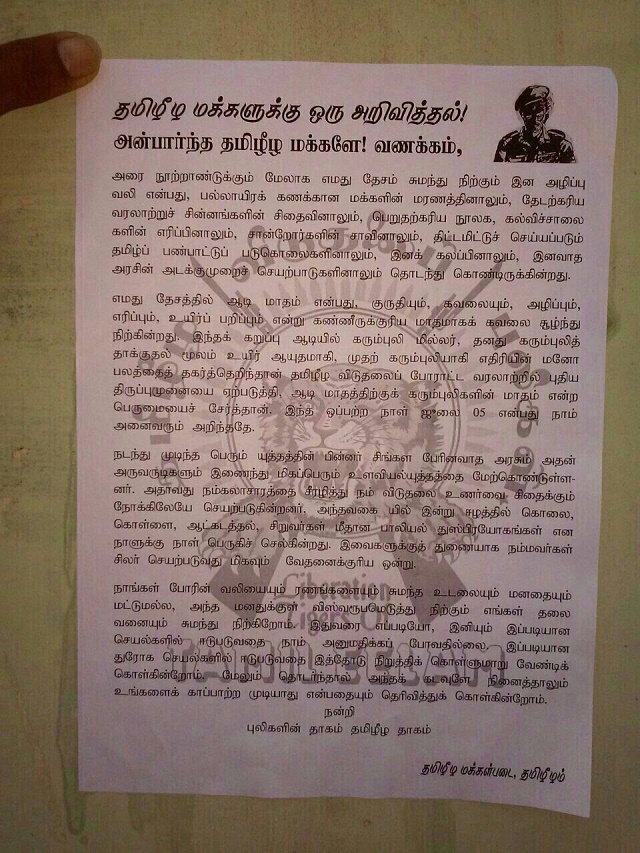 தமிழீழ மக்களுக்கு ஒரு அறிவித்தல்!
அன்பார்ந்த தமிழீழ மக்களே! வணக்கம்,
அரை நூற்றாண்டுக்கும் மேலாக எமது தேசம் சுமந்து நிற்கும் இன அழிப்பு
வலி என்பது, பல்லாயிரக் கணக்கான மக்களின் மரணத்தினாலும், தேடற்கரிய
வரலாற்றுச் சின்னங்களின் சிதைவினாலும், பெறுதற்கரிய நூலக, கல்விச்சாலை
களின் எரிப்பினாலும், சான்றோர்களின் சாவினாலும், திட்டமிட்டுச் செய்யப்படும்
தமிழ்ப் பண்பாட்டுப் படுகொலைகளினாலும், இனக் கலப்பினாலும், இனவாத
அரசின் அடக்குமுறைச் செயற்பாடுகளினாலும் தொடந்து கொண்டிருக்கின்றது.
எமது தேசத்தில் ஆடி மாதம் என்பது, குருதியும், கவலையும், அழிப்பும்,
எரிப்பும், உயிர்ப் பறிப்பும் என்று கண்ணீருக்குரிய மாதமாகக் கவலை சூழ்ந்து
நிற்கின்றது. இந்தக் கறுப்பு ஆடியில் கரும்புலி மில்லர், தனது கரும்புலித்
தாக்குதல் மூலம் உயிர் ஆயுதமாகி, முதற் கரும்புலியாகி எதிரியின் மனோ
பலத்தைத் தகர்த்தெறிந்தான் தமிழீழ விடுதலைப் போராட்ட வரலாற்றில் புதிய
திருப்புமுனையை ஏற்படுத்தி, ஆடி மாதத்திற்குக் கரும்புலிகளின் மாதம் என்ற
பெருமையைச் சேர்த்தான். இந்த ஒப்பற்ற நாள் ஜுலை 05 என்பது நாம்
அனைவரும் அறிந்ததே.
நடந்து முடிந்த பெரும் யுத்தத்தின் பின்னர் சிங்கள பேரினவாத அரசும் அதன்
அருவருடிகளும் இணைந்து மிகப்பெரும் உளவியல்யுத்தத்தை மேற்கொண்டுள்ள-
னர். அதாவது நம்கலாசாரத்தை சீரழித்து நம் விடுதலை உணர்வை சிதைக்கும்
நோக்கிலேயே செயற்படுகின்றனர். அந்தவகை யில் இன்று ஈழத்தில் கொலை,
கொள்ளை, ஆட்கடத்தல், சிறுவர்கள் மீதான பாலியல் துஸ்பிரயோகங்கள் என
நாளுக்கு நாள் பெருகிச் செல்கின்றது. இவைகளுக்குத் துணையாக நம்மவர்கள்
சிலர் செயற்படுவது மிகவும் வேதனைக்குரிய ஒன்று.
நாங்கள் போரின் வலியையும் ரணங்களையும் சுமந்த உடலையும் மனதையும்
மட்டுமல்ல, அந்த மனதுக்குள் விஸ்வரூபமெடுத்து நிற்கும் எங்கள் தலை
வனையும் சுமந்து நிற்கிறோம். இதுவரை எப்படியோ, இனியும் இப்படியான
செயல்களில் ஈடுபடுவதை நாம் அனுமதிக்கப் போவதில்லை. இப்படியான
துரோக செயல்களில் ஈடுபடுவதை இத்தோடு நிறுத்திக் கொள்ளுமாறு வேண்டிக்
கொள்கின்றோம். மேலும் தொடர்ந்தால் அந்தக் கடவுளே நினைத்தாலும்
உங்களைக் காப்பாற்ற முடியாது என்பதையும் தெரிவித்துக் கொள்கின்றோம்.
நன்றி
புலிகளின் தாகம் தமிழீழ தாகம்
தமிழீழ மக்கள்படை, தமிழீழம்
தமிழீழ விடுதலைப் புலிகள்
Liberation
Tigers Of
TAMIL EELAM